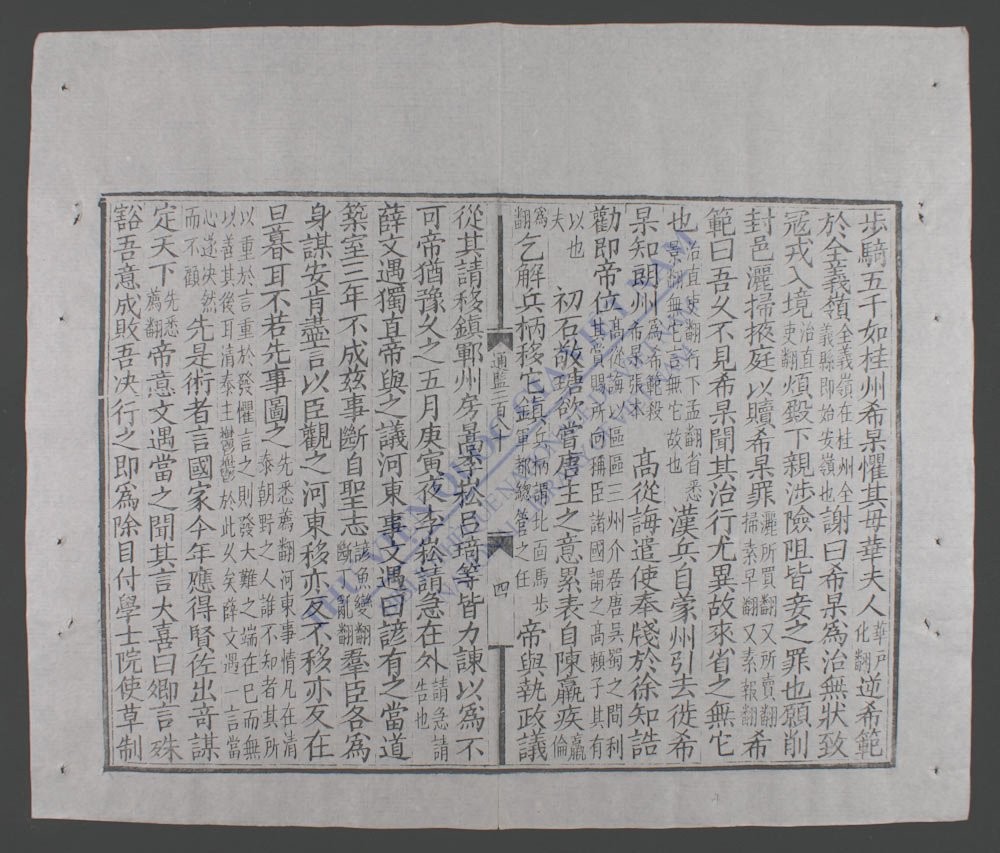 步騎五千如桂州希杲懼其母華夫人華戶化翻逆希範
於全義嶺全義嶺在桂州全義縣即始安嶺也謝曰希杲爲治無狀致
冠戎入境治直吏翻煩殿下親涉險阻皆妾之罪也願削
封邑灑掃掖庭以贖希杲罪灑所買翻又所賣翻掃素早翻又素報翻希
範曰吾久不見希杲聞其治行尤異故來省之無它
也治直吏翻行下孟翻省悉景翻無它言無它故也漢兵自蒙州引去徙希
杲知朗州爲希範殺希杲張本高從誨遣使奉牋於徐知誥
勸即帝位高從誨以區區三州介居唐吳蜀之間利其賞賜所向稱臣諸國謂之高賴子其有
以也夫初石敬瑭欲嘗唐主之意累表自陳羸疾羸倫
爲翻乞解兵柄移它鎮兵柄謂北面馬步軍都總管之任帝與執政議
通監二百八十
四
從其請移鎮鄆州房暠李崧呂琦等皆力諫以爲不
可帝猶豫久之五月庚寅夜李崧請急在外請急請告也
薛文遇獨直帝與之議河東事文遇曰諺有之當道
築室三年不成茲事斷自聖志諺魚變翻斷丁亂翻羣臣各爲
身謀安肯盡言以臣觀之河東移亦反不移亦反在
旦暮耳不若先事圖之先悉薦翻河東事情凡在清泰朝野之人誰不知者其所
以重於言重於發懼言之則發大難之端在己而無以善其後耳清泰主鬱鬱於此久矣薛文遇一言當
心遂決然而不顧先是術者言國家今年應得賢佐出奇謀
定天下先悉薦翻帝意文遇當之聞其言大喜曰卿言殊
豁吾意成敗吾決行之即爲除目付學士院使草制